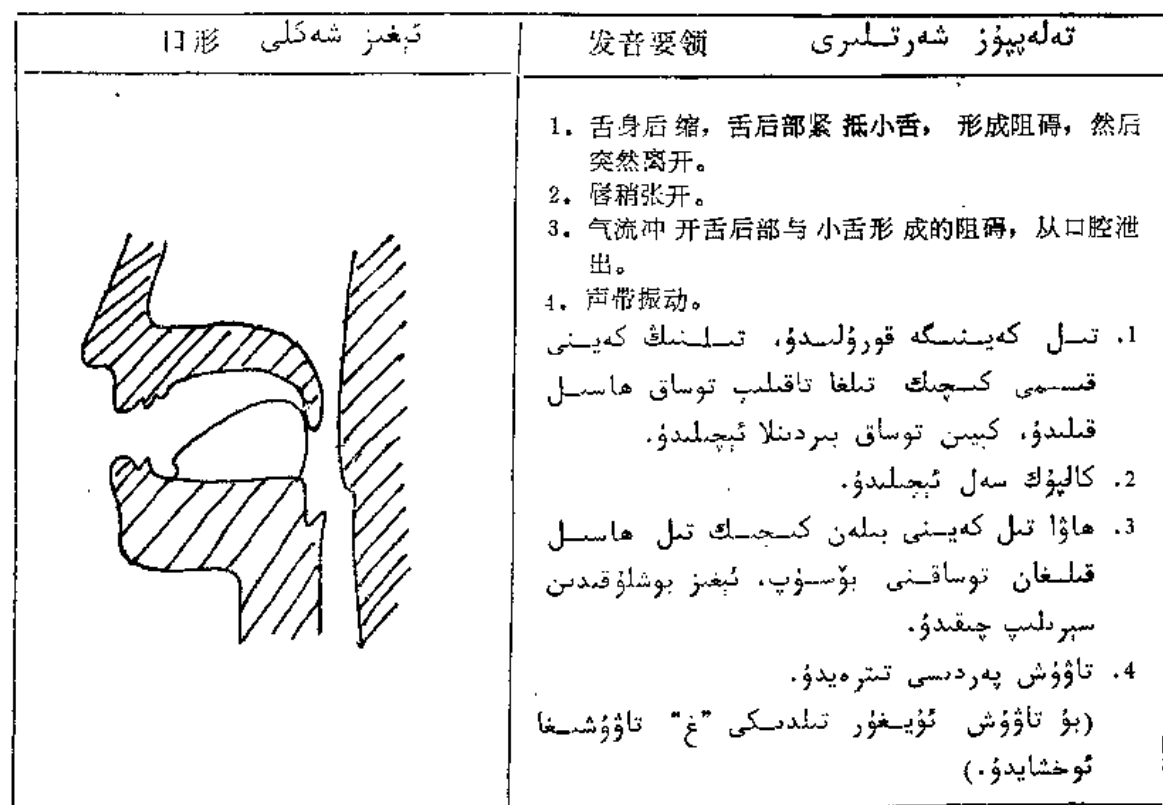 口形 ئېغىز شەكلى
发音要领 تەلەپپۇز شەرتلىرى
1. 舌身后缩，舌后部紧抵小舌，形成阻碍，然后
突然离开。
2. 唇稍张开。
3. 气流冲开舌后部与小舌形成的阻碍，从口腔泄
出。
4. 声带振动。
1. تىل كەينىگە قورۇلىدۇ، تىلنىڭ كەينى
قىسمى كىچىك تىلغا تاقىلىپ توساق ھاسىل
قىلىدۇ، كېيىن توساق بىردىنلا ئېچىلىدۇ.
2. كالپۇك سەل ئېچىلىدۇ.
3. ھاۋا تىل كەينى بىلەن كىچىك تىل ھاسىل
قىلغان توساقنى بۆسۈپ، ئېغىز بوشلۇقىدىن
سىيرىلىپ چىقىدۇ.
4. تاۋۇش پەردىسى تىترەيدۇ.
(بۇ تاۋۇش ئۇيغۇر تىلدىكى "غ" تاۋۇشىغا
ئوخشايدۇ.)